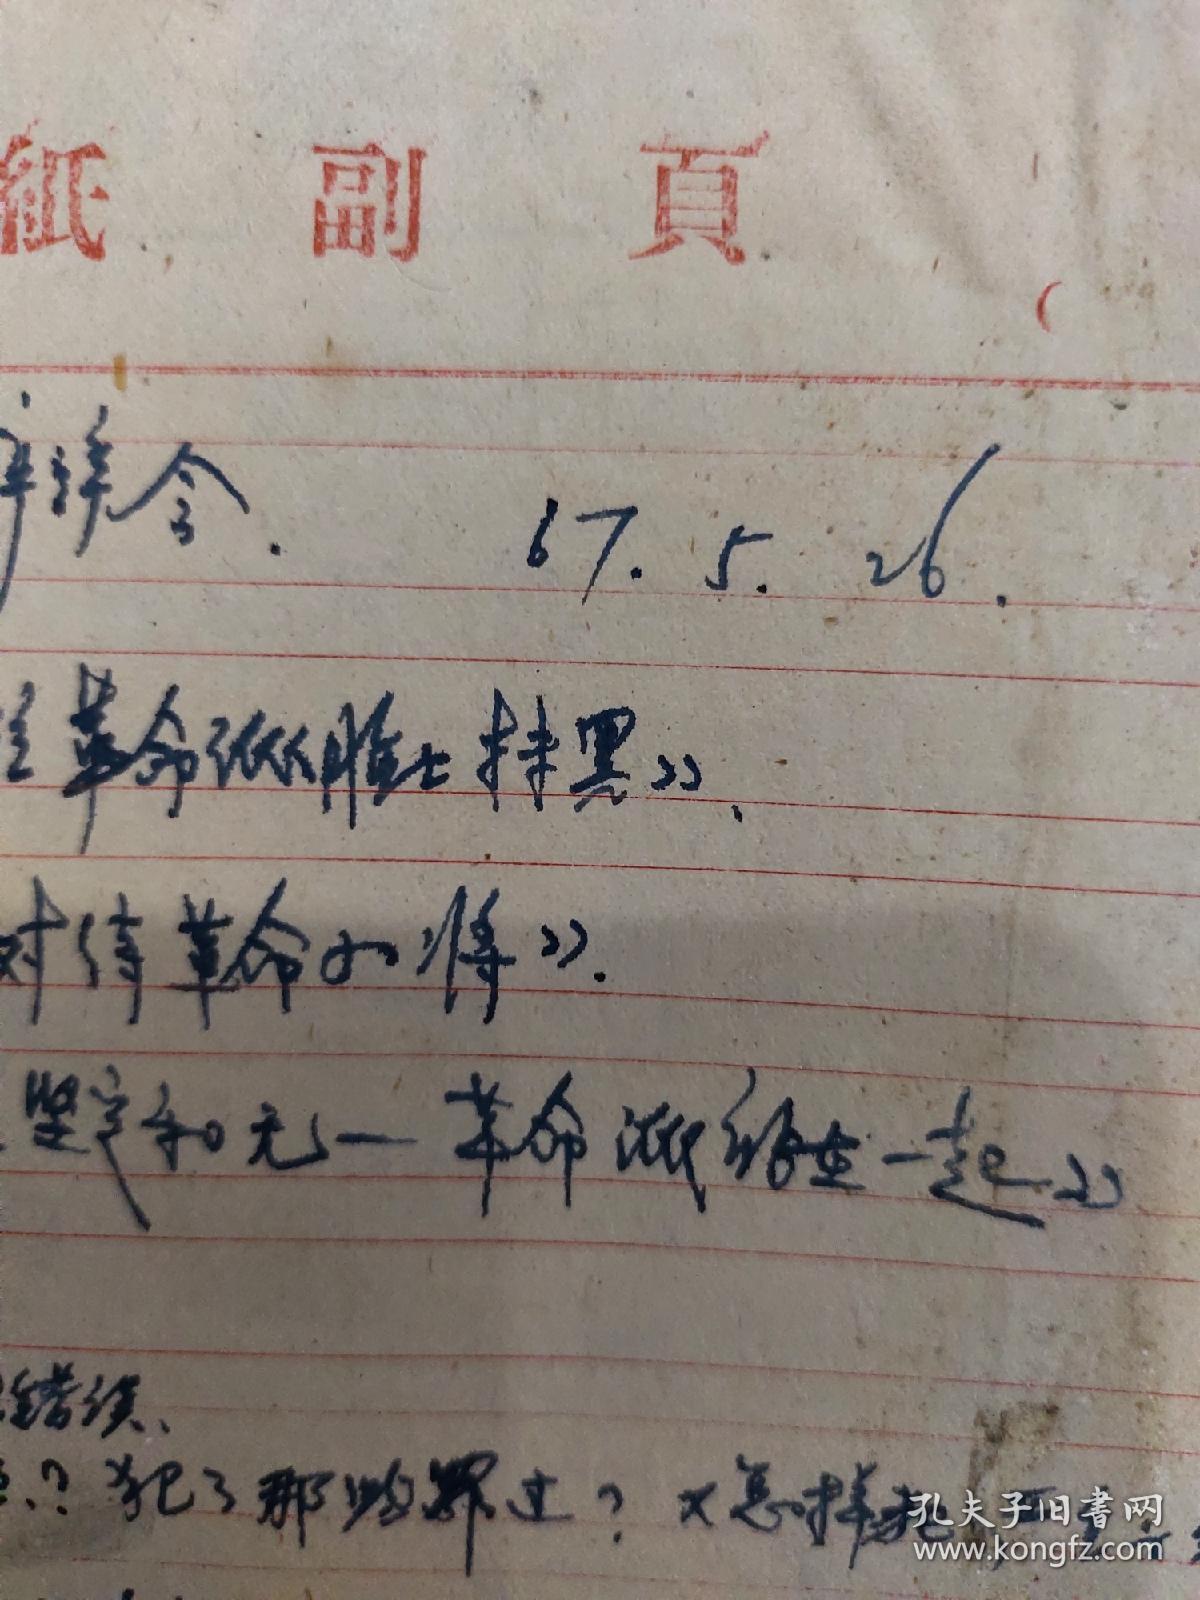 紙副頁
(
会. 67.5.26.
革命派脸上抹黑》、
对待革命小将》.
坚定和无一革命派结在一起》
错误、
?犯了那些罪过?又怎样犯严
孔夫子旧書网
www.kongfz.com